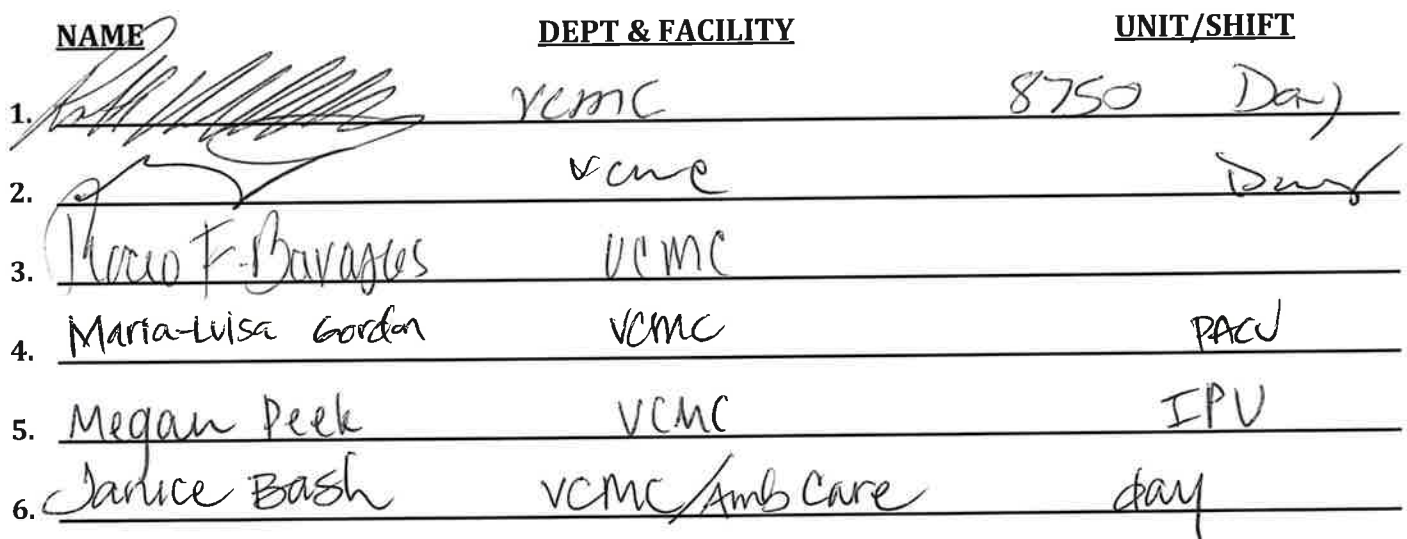 NAME DEPT & FACILITY UNIT/SHIFT
1. VCMC 8750 Day
2. vcmc Day
3. F. VCMC
4. Maria-Luisa Gordon VCMC PACU
5. Megan Peek VCMC IPU
6. Janice Bash VCMC/Amb Care day